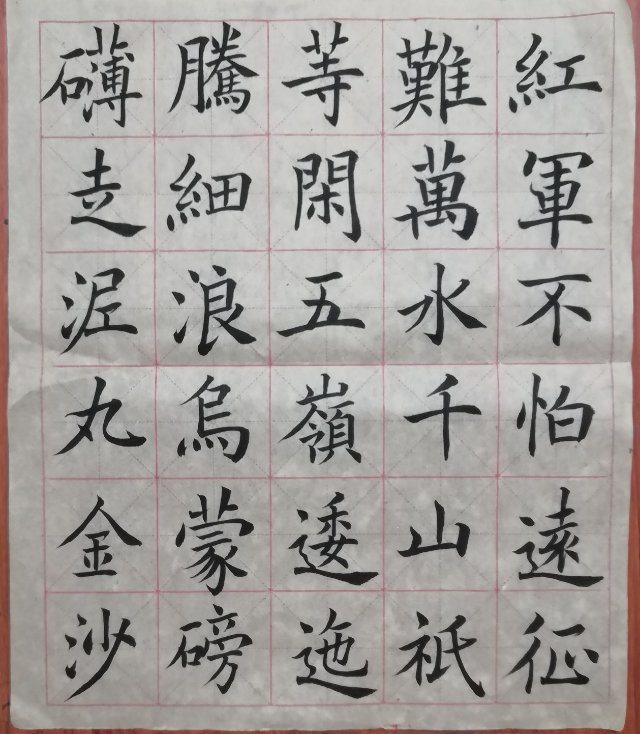 紅軍不怕遠征
難萬水千山祇
等閑五嶺逶迤
騰細浪烏蒙磅
礴走泥丸金沙